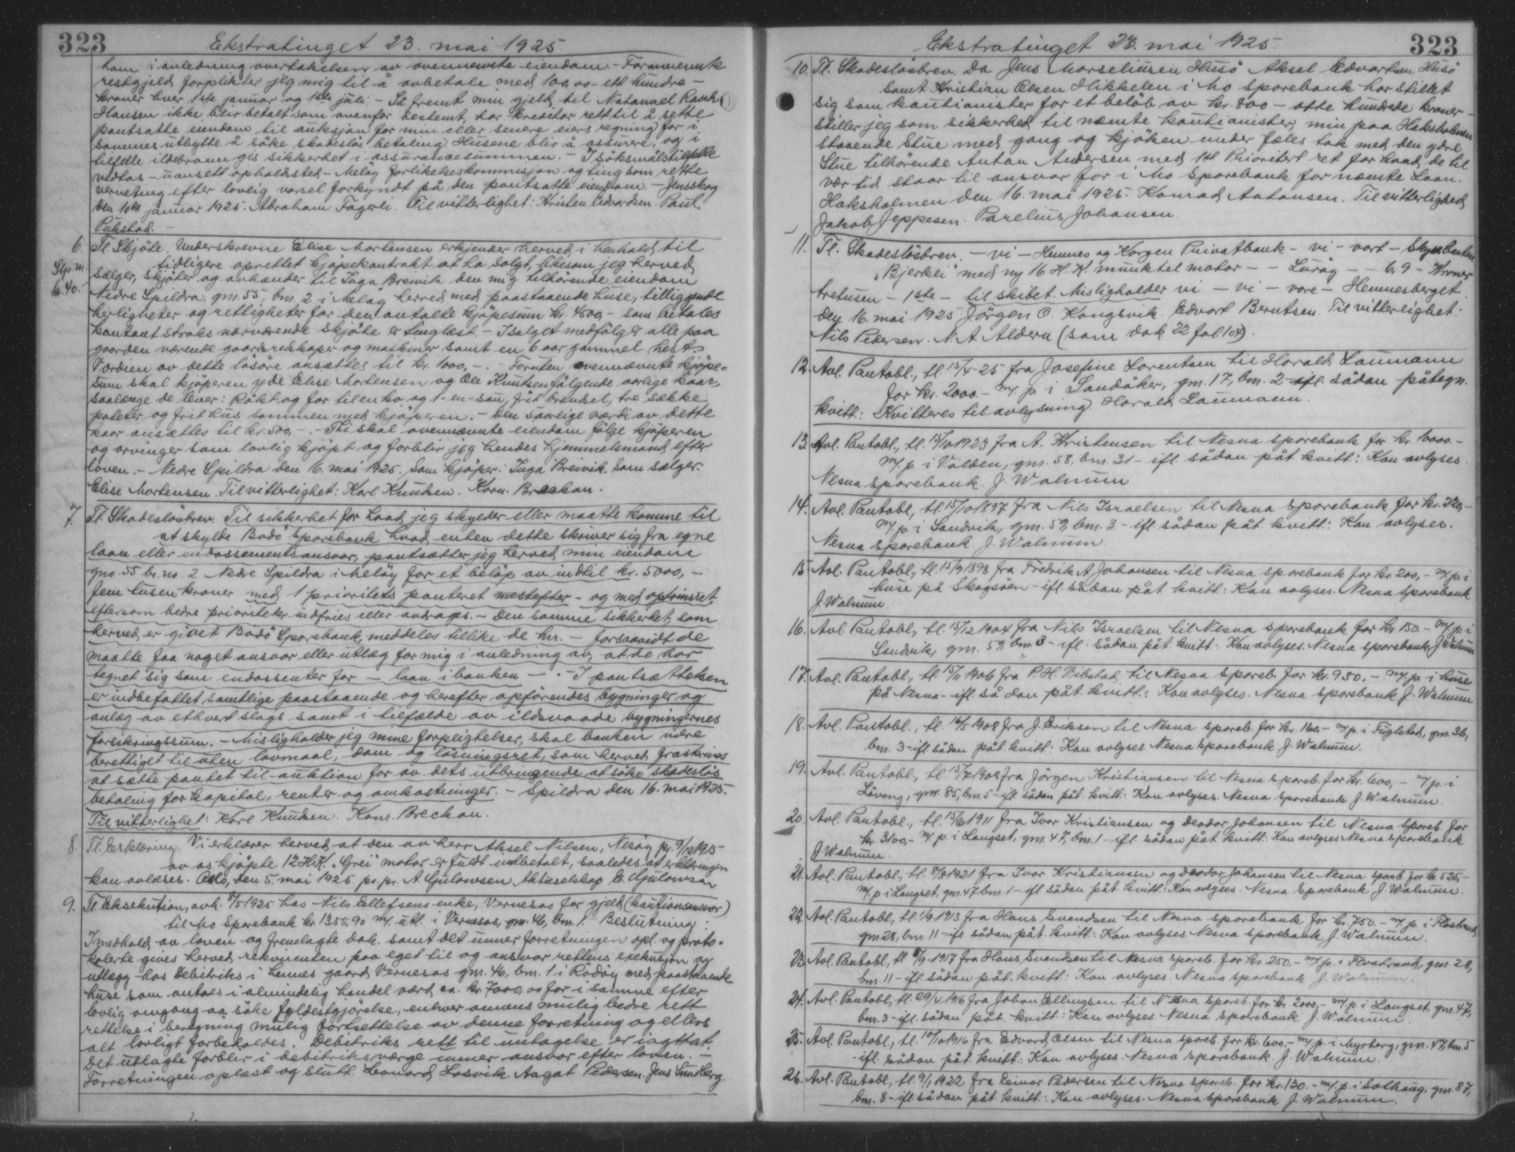 323 Ekstratinget 23. mai 1925
ham i anledning overtakelsen av ovennevnte eiendom. - Forannevnte
restgjeld forplikter jeg mig til å avbetale med 100,00 - ett hundre -
kroner hver 1ste januar og 1ste juli. - Så fremt min gjeld til Natanael
Hansen ikke blir betalt som ovenfor bestemt, har kreditor rett til å sette
pantsatte eiendom til auksjon for min eller senere eiers regning for i
sammes utbytte å søke skadesløs betaling. Husene blir å assurere, og i
tilfelle ildebrann gis sikkerhet i assurancesummen. - I søksmålstilfelle
vedtas - uansett opholdssted - Meløy forlikelseskommisjon og ting som rette
verneting efter lovlig varsel forkyndt på den pantsatte eiendom. -
den 10de januar 1925. Abraham Fagerli. Til vitterlighet: Kristen Edvardsen. Paul
6. Tl. Skjöte. Underskrevne Elise Mortensen erkjender herved i henhold til
tidligere oprettet kjöpekontrakt at ha solgt, likesom jeg herved
Stp. m. sælger, skjöter og avhænder til Inga Breivik den mig tilhörende eiendom
kr. 40.- Nedre Spildra, gm. 55, bm. 2 i Meløy herred med paastaaende huse, tilliggende
herligheter og rettigheter for den avtalte kjöpesum kr. 4500,- som betales
kontant straks nærværende skjöte er tinglæst. - I salget medfølger alle paa
gaarden værende gaardsredskaper og maskiner samt en 6 aar gammel hest.
Værdien av dette lösöre ansættes til kr. 1000,-. - Foruten ovennævnte kjöpe-
sum skal kjöperen yde Elise Mortensen og Ole Knutsen følgende aarlige kaar,
saalænge de lever: Rökt og for til en ko og 1 - en - sau, frit brændsel, tre sække
poteter og frit hus sammen med kjöperen. - Den aarlige værdi av dette
kaar ansættes til kr. 500,-. - Thi skal ovennævnte eiendom følge kjöperen
og arvinger som lovlig kjöpt og forblir jeg hendes hjemmelsmand efter
loven. - Nedre Spildra den 16. mai 1925. Som kjöper: Inga Breivik. Som sælger:
Elise Mortensen. Til vitterlighet: Karl Knudsen. Korn. Breckan.
7. Tl. Skadeslösbrev. Til sikkerhet for hvad jeg skylder eller maatte komme til
at skylde Bodö Sparebank, hvad enten dette skriver sig fra egne
laan eller endossementsansvar, pantsætter jeg herved min eiendom
gno. 55 br. no. 2 Nedre Spildra i Meløy for et beløp av indtil kr. 5000,-
fem tusen kroner med 1 prioritets panteret næstefter - og med oprinsret
eftersom bedre prioriteter indfries eller avdrages. - Den samme sikkerhet som
herved er givet Bodö Sparebank, meddeles tillike de hrr. - forsaavidt de
maatte faa noget ansvar eller utlæg for mig i anledning av, at de har
tegnet sig som endossenter for - laan i banken - . - I pantsættelsen
er indbefattet samtlige paastaaende og herefter opförendes bygninger og
anlæg av ethvert slags samt i tilfælde av ildsvaade bygningernes
forsikringssum. - Misligholder jeg mine forpligtelser, skal banken være
berettiget til uten lovmaal, dom og løsningsret, som herved fraskrives
at sætte pantet til auktion for av dets utbringende at söke skadeslös
betaling for kapital, renter og omkostninger. - Spildra den 16. mai 1925.
Til vitterlighet: Karl Knudsen. Korn. Breckan.
8. Tl. Erklæring. Vi erklærer herved, at den av herr Aksel Nilsen, Nesøy pr. 9/12 1915
av os kjöpte 12 H.K. "Grei" motor er fuldt indbetalt, saaledes at erklæringen
kan avlæses. Oslo, den 5. mai 1925 pr. pr. A. Gulowsen Aktieselskap G. Gulowsen
9. Tl. Eksekution, avh. 8/5 1925 hos Nils Ellefsens enke, Vernesos for gjeld (kautionsansvar)
til Mo Sparebank kr. 1355,90 m/. utl. i Vernesos, gm. 46, bm. 1. Beslutning:
I medhold av loven og fremlagte dok. samt det under forretningen opl. og proto-
kolerte gives herved rekvirenten paa eget til og ansvar rettens eksekusjon og
utlegg hos debitriks i hennes gaard Vernesos gm. 46, bm. 1 i Rødöy med paastaaende
huse som antaes i almindelig handel værd ca. kr. 7000,00 for i samme efter
lovlig omgang aa søke fyldestgjörelse, enhver annens mulig bedre rett
rettelse i beregning mulig fortsettelse av denne forretning og ellers
alt lovligt forbeholdes. Debitriks rett til untagelse er iagttat.
Det utlagte forblir i debitriks verge under ansvar efter loven. -
Forretningen oplæst og slutt. Leonard Losvik. Aagot Pedersen. Jens Sundberg.
Ekstratinget 23. mai 1925. 323
10. Tl. Skadeslösbrev. Da Jens Marselius en Husö Aksel Edvardsen Husö
samt Kristian Olsen Hikkelen i Mo Sparebank har stillet
sig som kautionister for et beløb av kr. 800 - otte hundrede kroner -
stiller jeg som sikkerhed til nævnte kautionister, min paa Haksholmen
staaende Stue med gang og kjöken under fæles tak med den ydre
Stue tilhörende Anton Andersen med 1st Prioritet ret for hvad de til
vær tid staar til ansvar for i Mo Sparebank for nævnte Laan.
Haksholmen den 16. mai 1925. Konrad Antonsen. Til vitterlighed
Jakob Jeppesen. Parelius Johansen.
11. Tl. Skadeslösbrev. - vi - Hemnes og Korgen Privatbank - vi - vort -
"Bjerkli" med ny 16 H.K. munktel motor - - Luröy - - 69 - Kroner
tretusen - 1ste - til skibet. Misligholder vi - vi - vore - Hemnesberget
den 16. mai 1925. Jörgen O. Kongsvik. Edvart Berntsen. Til vitterlighet:
Nils Pedersen. N. A. Aldern (som dok 22 fol 109).
12. Avl. Pantobl., tl. 15/5-25 fra Josefine Lorentsen til Harald Laumann
for kr. 2000.- m/ p i Sandåker, gm. 17, bm. 2 - ifl. sådan påtegn.
kvitt: Kvitteres til avlysning Harald Laumann.
13. Avl. Pantobl., tl. 15/10 1923 fra A. Kristensen til Nesna sparebank for kr. 10000.-
m/ p i Valden, gm. 58, bm. 31 - ifl. sådan påt. kvitt: Kan avlyses.
Nesna sparebank. J. Walnum
14. Avl. Pantobl., tl. 15/10 1897 fra Nils Israelsen til Nesna sparebank for kr. 320,-
m/ p i Sandvik, gm. 59, bm. 3 - ifl. sådan påt. kvitt: Kan avlyses.
Nesna sparebank J. Walnum
15. Avl. Pantobl., tl. 15/9 1898 fra Fredrik A. Johansen til Nesna sparebank for kr. 200,- m/ p i
huse på Skogsöen - ifl. sådan påt. kvitt: Kan avlyses. Nesna Sparebank
J. Walnum.
16. Avl. Pantobl., tl. 15/12 1904 fra Nils Israelsen til Nesna sparebank for kr. 150.- m/ p i
Sandvik, gm. 59, bm. 3 - ifl. sådan påt. kvitt: Kan avlyses. Nesna sparebank J. Walnum
17. Avl. Pantobl., tl. 15/5 1906 fra P. H. Tibstad til Nesna spareb. for kr. 950.- m/ p i huse
på Nesna - ifl. sådan påt. kvitt: Kan avlyses. Nesna sparebank J. Walnum
18. Avl. Pantobl., tl. 14/5 1908 fra J. Eriksen til Nesna spareb. for kr. 160.- m/ p i Fuglstad, gm. 36,
bm. 3 - ifl. sådan påt. kvitt: Kan avlyses Nesna Sparebank J. Walnum.
19. Avl. Pantobl., tl. 15/7 1908 fra Jörgen Kristiansen til Nesna spareb. for kr. 600,- m/ p i
Lövong, gm. 85, bm. 5 - ifl. sådan påt. kvitt: Kan avlyses. Nesna sparebank J. Walnum.
20. Avl. Pantobl., tl. 15/6 1911 fra Ivar Kristiansen og Deodor Johansen til Nesna spareb. for
kr. 3100,- m/ p i Langset, gm. 47, bm. 1 - ifl. sådan påt. kvitt: Kan avlyses Nesna Sparebank
J. Walnum.
21. Avl. Pantobl., tl. 1921 fra Ivar Kristiansen og Deodor Johansen til Nesna spareb for kr. 525.-
m/ p i Langset, gm. 47 bm. 1 - ifl. sådan påt. kvitt: Kan avlyses. Nesna Sparebank J. Walnum.
22. Avl. Pantobl., tl. 1/9 1913 fra Hans Svendsen til Nesna sparebank for kr. 750.- m/ p i Flostrand,
gm. 28, bm. 11 - ifl. sådan påt. kvitt: Kan avlyses Nesna Sparebank J. Walnum.
23. Avl. Pantobl., tl. 1917 fra Hans Svendsen til Nesna spareb. for kr. 250.- m/ p i Flostrand, gm. 28,
bm. 11 - ifl. sådan påt. kvitt: Kan avlyses Nesna sparebank J. Walnum.
24. Avl. Pantobl., tl. 1916 fra Johan Ellingsen til Nesna spareb for kr. 2000,- m/ p i Langset, gm. 47,
bm. 3 - ifl. sådan påt. kvitt: Kan avlyses Nesna Sparebank J. Walnum.
25. Avl. Pantobl., tl. 1916 fra Edvard Olsen til Nesna spareb for kr. 600.- m/ p. i Myrberg, gm. 47, bm. 5
- ifl. sådan påt. kvitt: Kan avlyses. Nesna sparebank. J. Walnum.
26. Avl. Pantobl., tl. 9/1 1922 fra Einar Pedersen til Nesna spareb. for kr. 130.- m/ p. i Solhaug, gm. 87,
bm. 8 - ifl. sådan påt. kvitt: Kan avlyses. Nesna Sparebank J. Walnum.